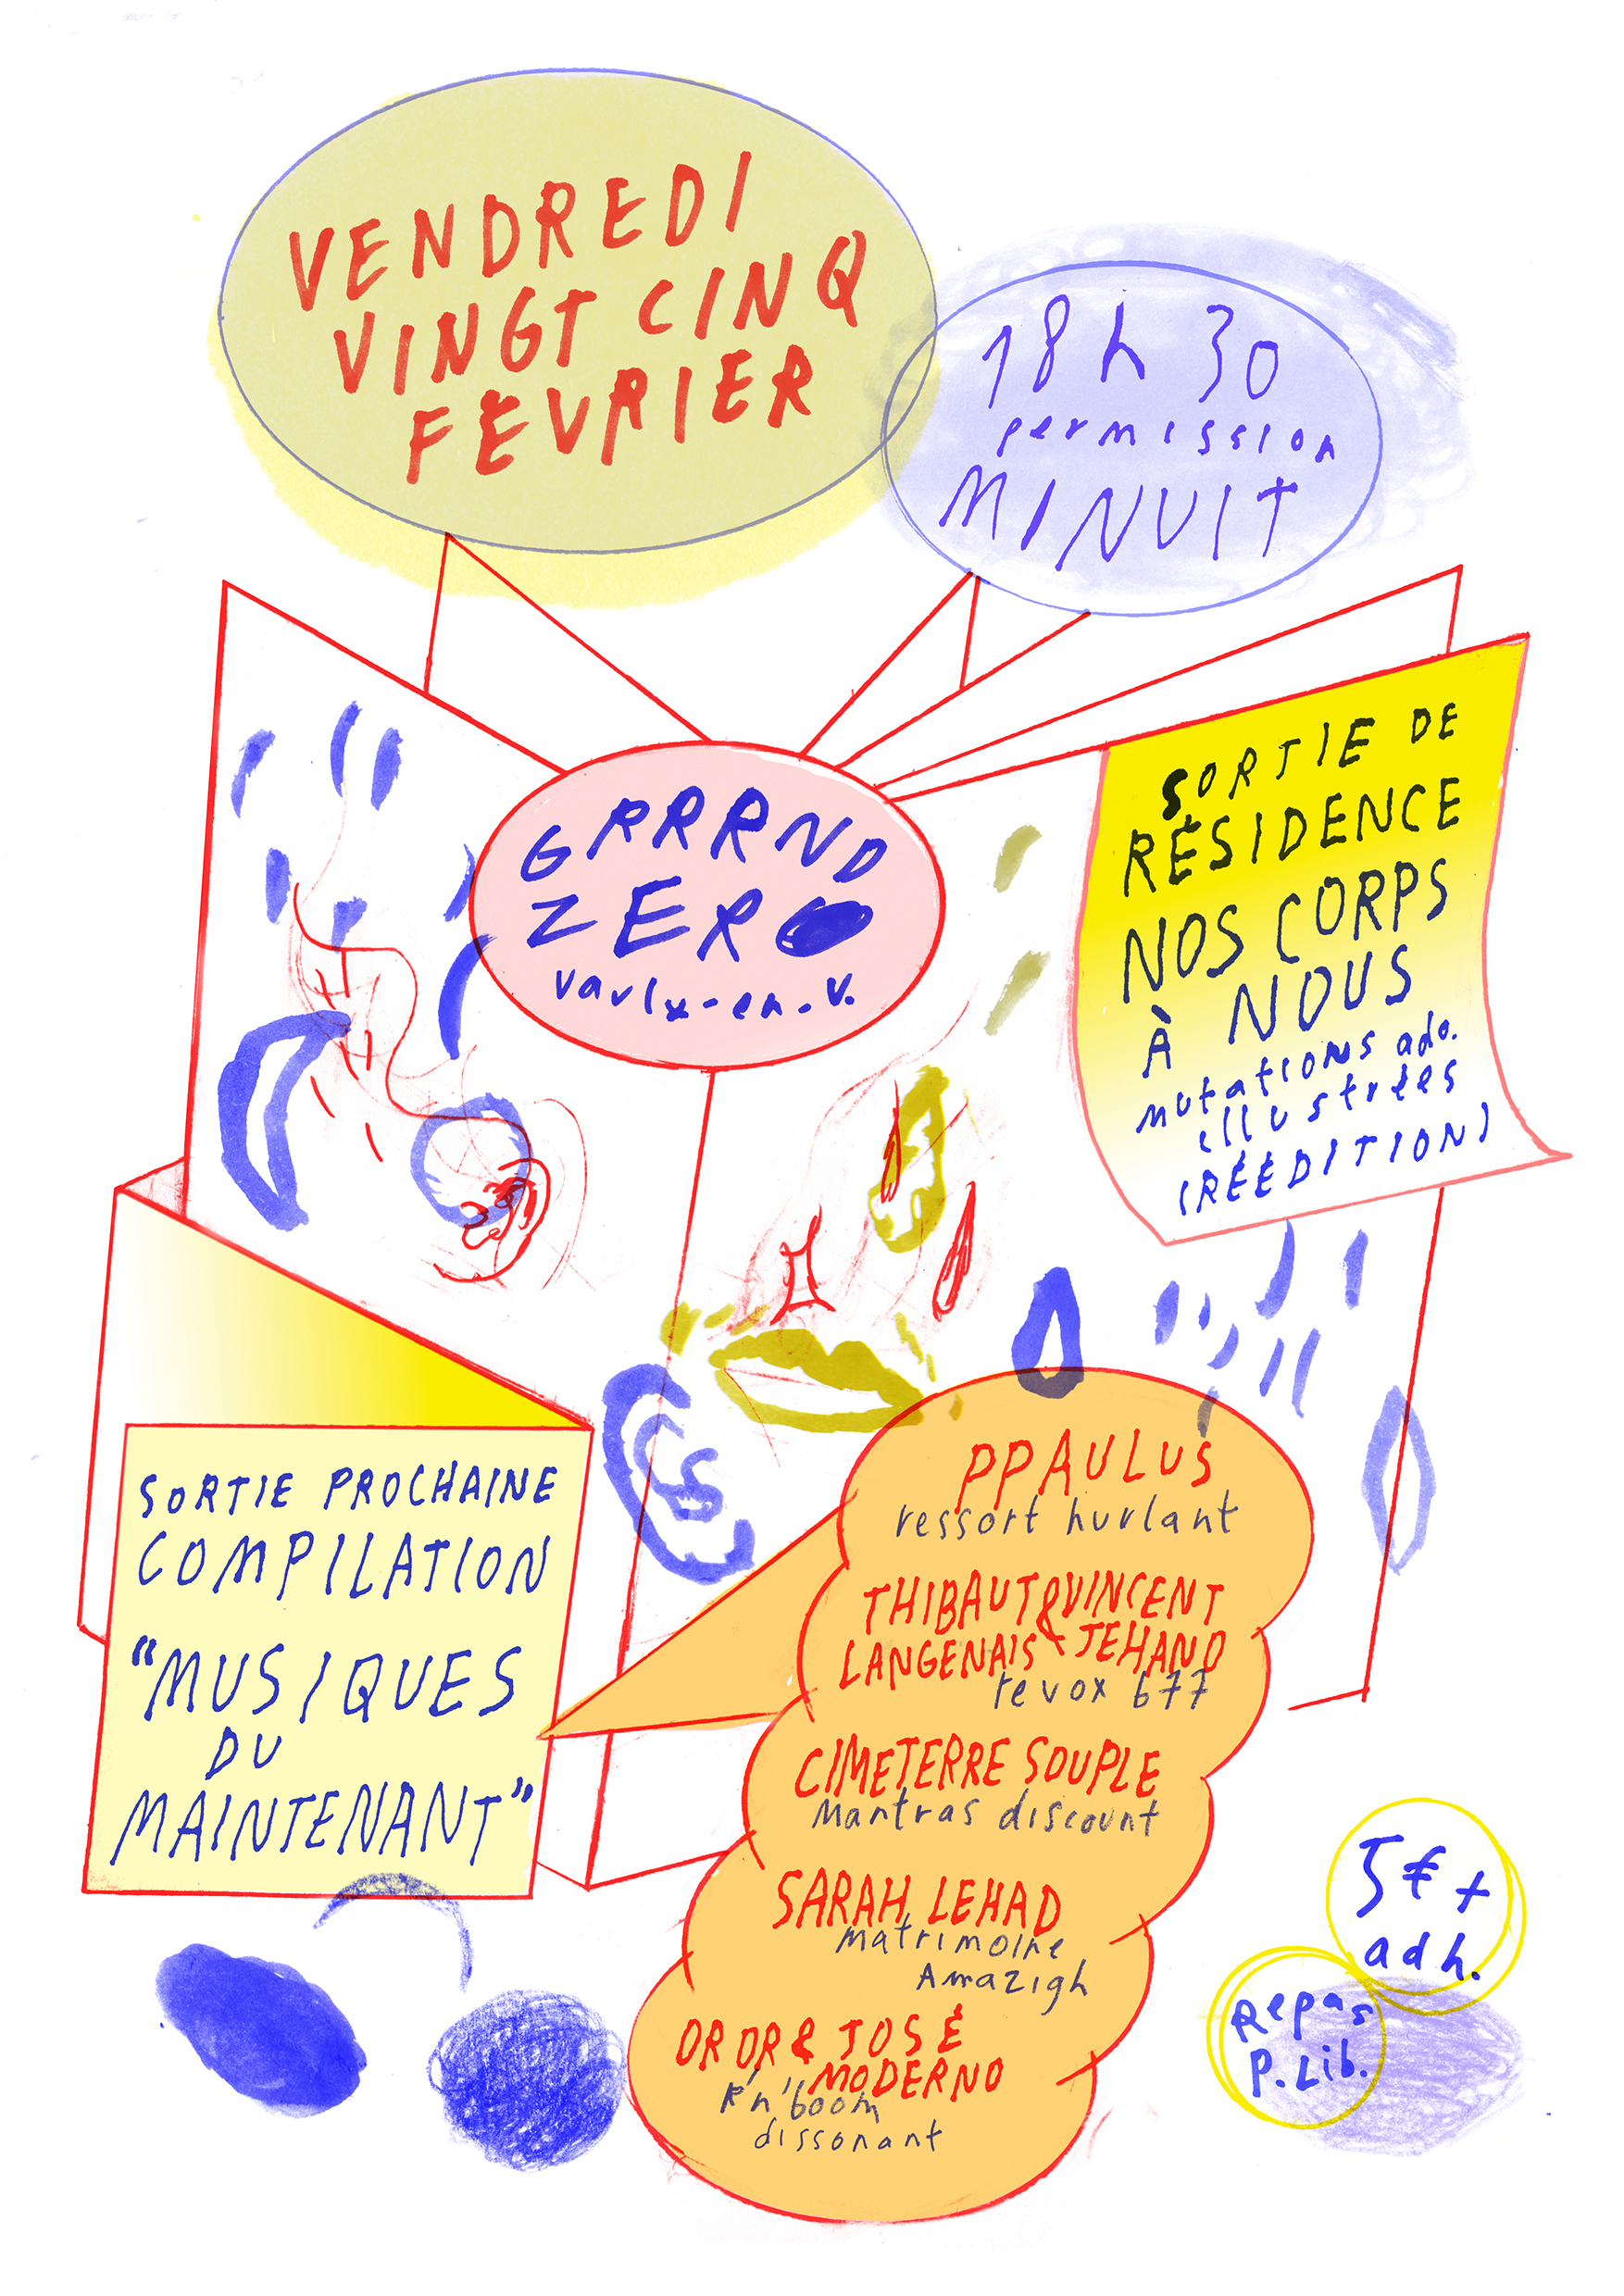 VENDREDI
VINGT CINQ
FEVRIER
18h 30
permission
MINUIT
GRRRND
ZERO
vaulx-en-v.
SORTIE DE
RÉSIDENCE
NOS CORPS
À NOUS
mutations ado.
illustrées
(RÉÉDITION)
SORTIE PROCHAINE
COMPILATION
"MUSIQUES
DU
MAINTENANT"
PPAULUS
ressort hurlant
THIBAUT & VINCENT
LANGENAIS JEHANO
revox b77
CIMETERRE SOUPLE
Mantras discount
SARAH LEHAD
matrimoine
Amazigh
OR OR & JOSÉ
MODERNO
R'n'boom
dissonant
5€ +
adh.
Repas
P. Lib.